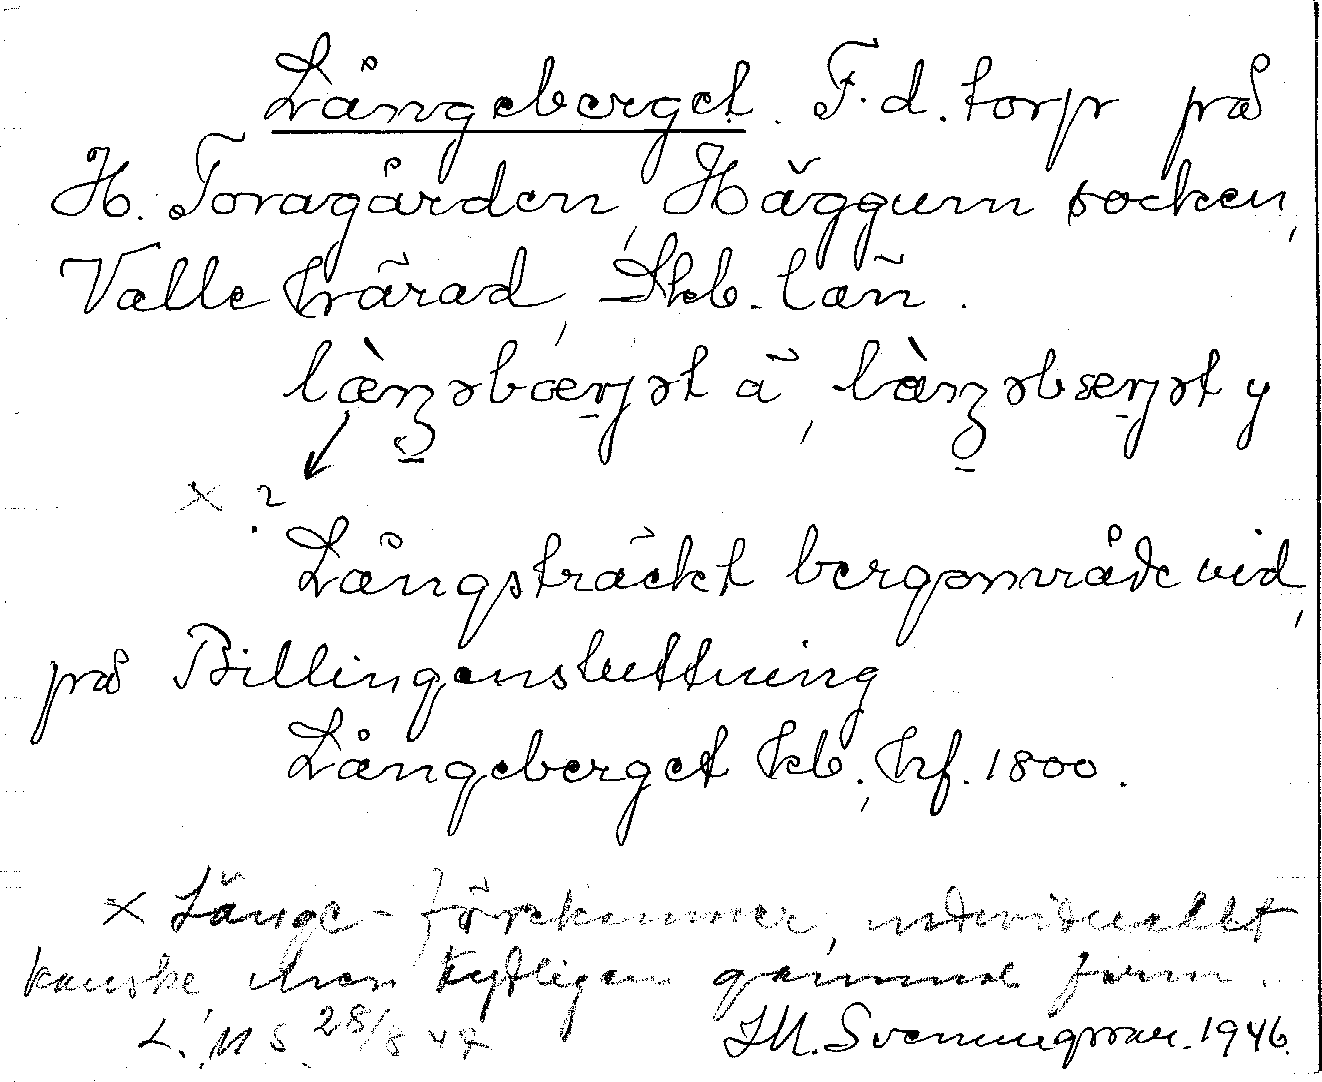 Långeberget. F.d. torp på
H. Toragården, Häggum socken,
Valle härad, Skb. län.
læ̀ŋəbærjət ä, làŋəbærjət y
x ?
Långsträckt bergområde vid,
på Billingensluttning
Långeberget kb., hf. 1800.
x Länge- förekommer, individuellt
kanske, men tydligen gammal form.
L. M S. 28/8 47 LM. Svenungsson. 1946.